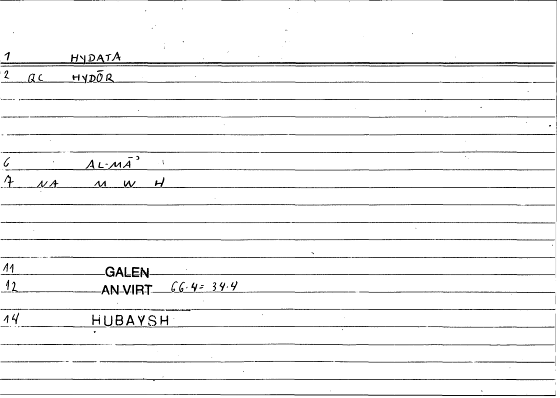 1 HYDATA
2 QC HYDŌR
6 AL-MĀʾ
7 NA M W H
11 GALEN
12 AN.VIRT 66.4 = 34.4
14 HUBAYSH